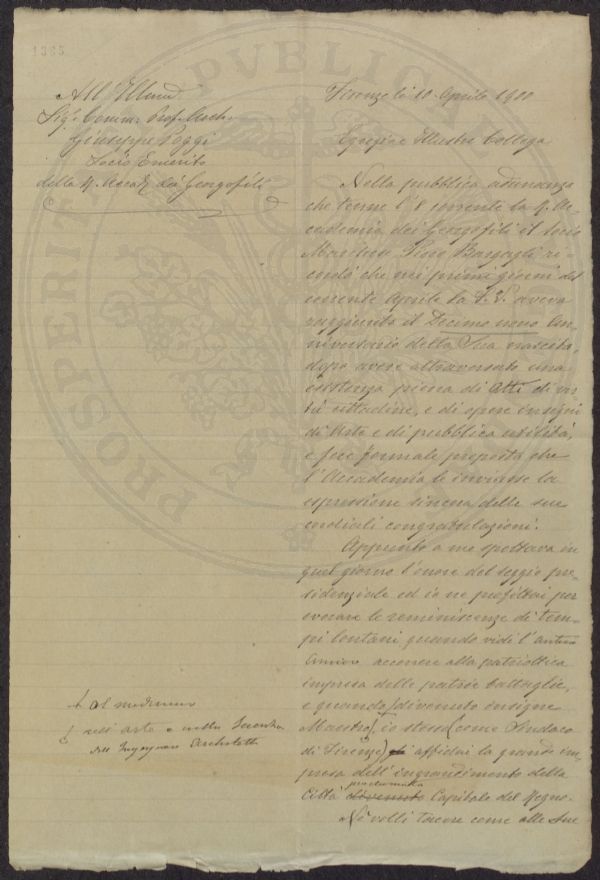 1365
All'Illmo
Sig. Comm. Prof. Arch.
Giuseppe Poggi
Socio Emerito
della R. Accad. dei Georgofili
Firenze li 10 Aprile 1900
Egregio e Illustre Collega
Nella pubblica adunanza
che tenne l'8 corrente la R. Ac-
cademia dei Georgofili il Socio
Marchese Piero Bargagli ri-
cordò che nei primi giorni del
corrente Aprile la S. V. aveva
raggiunto il Decimo nono An-
niversario della Sua nascita,
dopo avere attraversato una
esistenza piena di atti di vir-
tù cittadine, e di opere insigni
di Arte e di pubblica utilità,
e fece formale proposta che
l'Accademia le inviasse la
espressione sincera delle sue
cordiali congratulazioni.
Appunto a me spettava in
quel giorno l'onore del seggio pre-
sidenziale ed io ne profittai per
evocare le reminiscenze di tem-
pi lontani quando vidi l'antico
Amico accorrere alla patriottica
impresa delle patrie battaglie,
e quando divenuto insigne
Maestro, io stesso (come Sindaco
di Firenze) affidai la grande im-
presa dell'ingrandimento della
Città divenuta proclamata Capitale del Regno.
Nè volli tacere come alle sue
al medesimo
nell'arte e nella Scienza
dell'Ingegnere Architetto
PROSPERITATI PVBLICAE